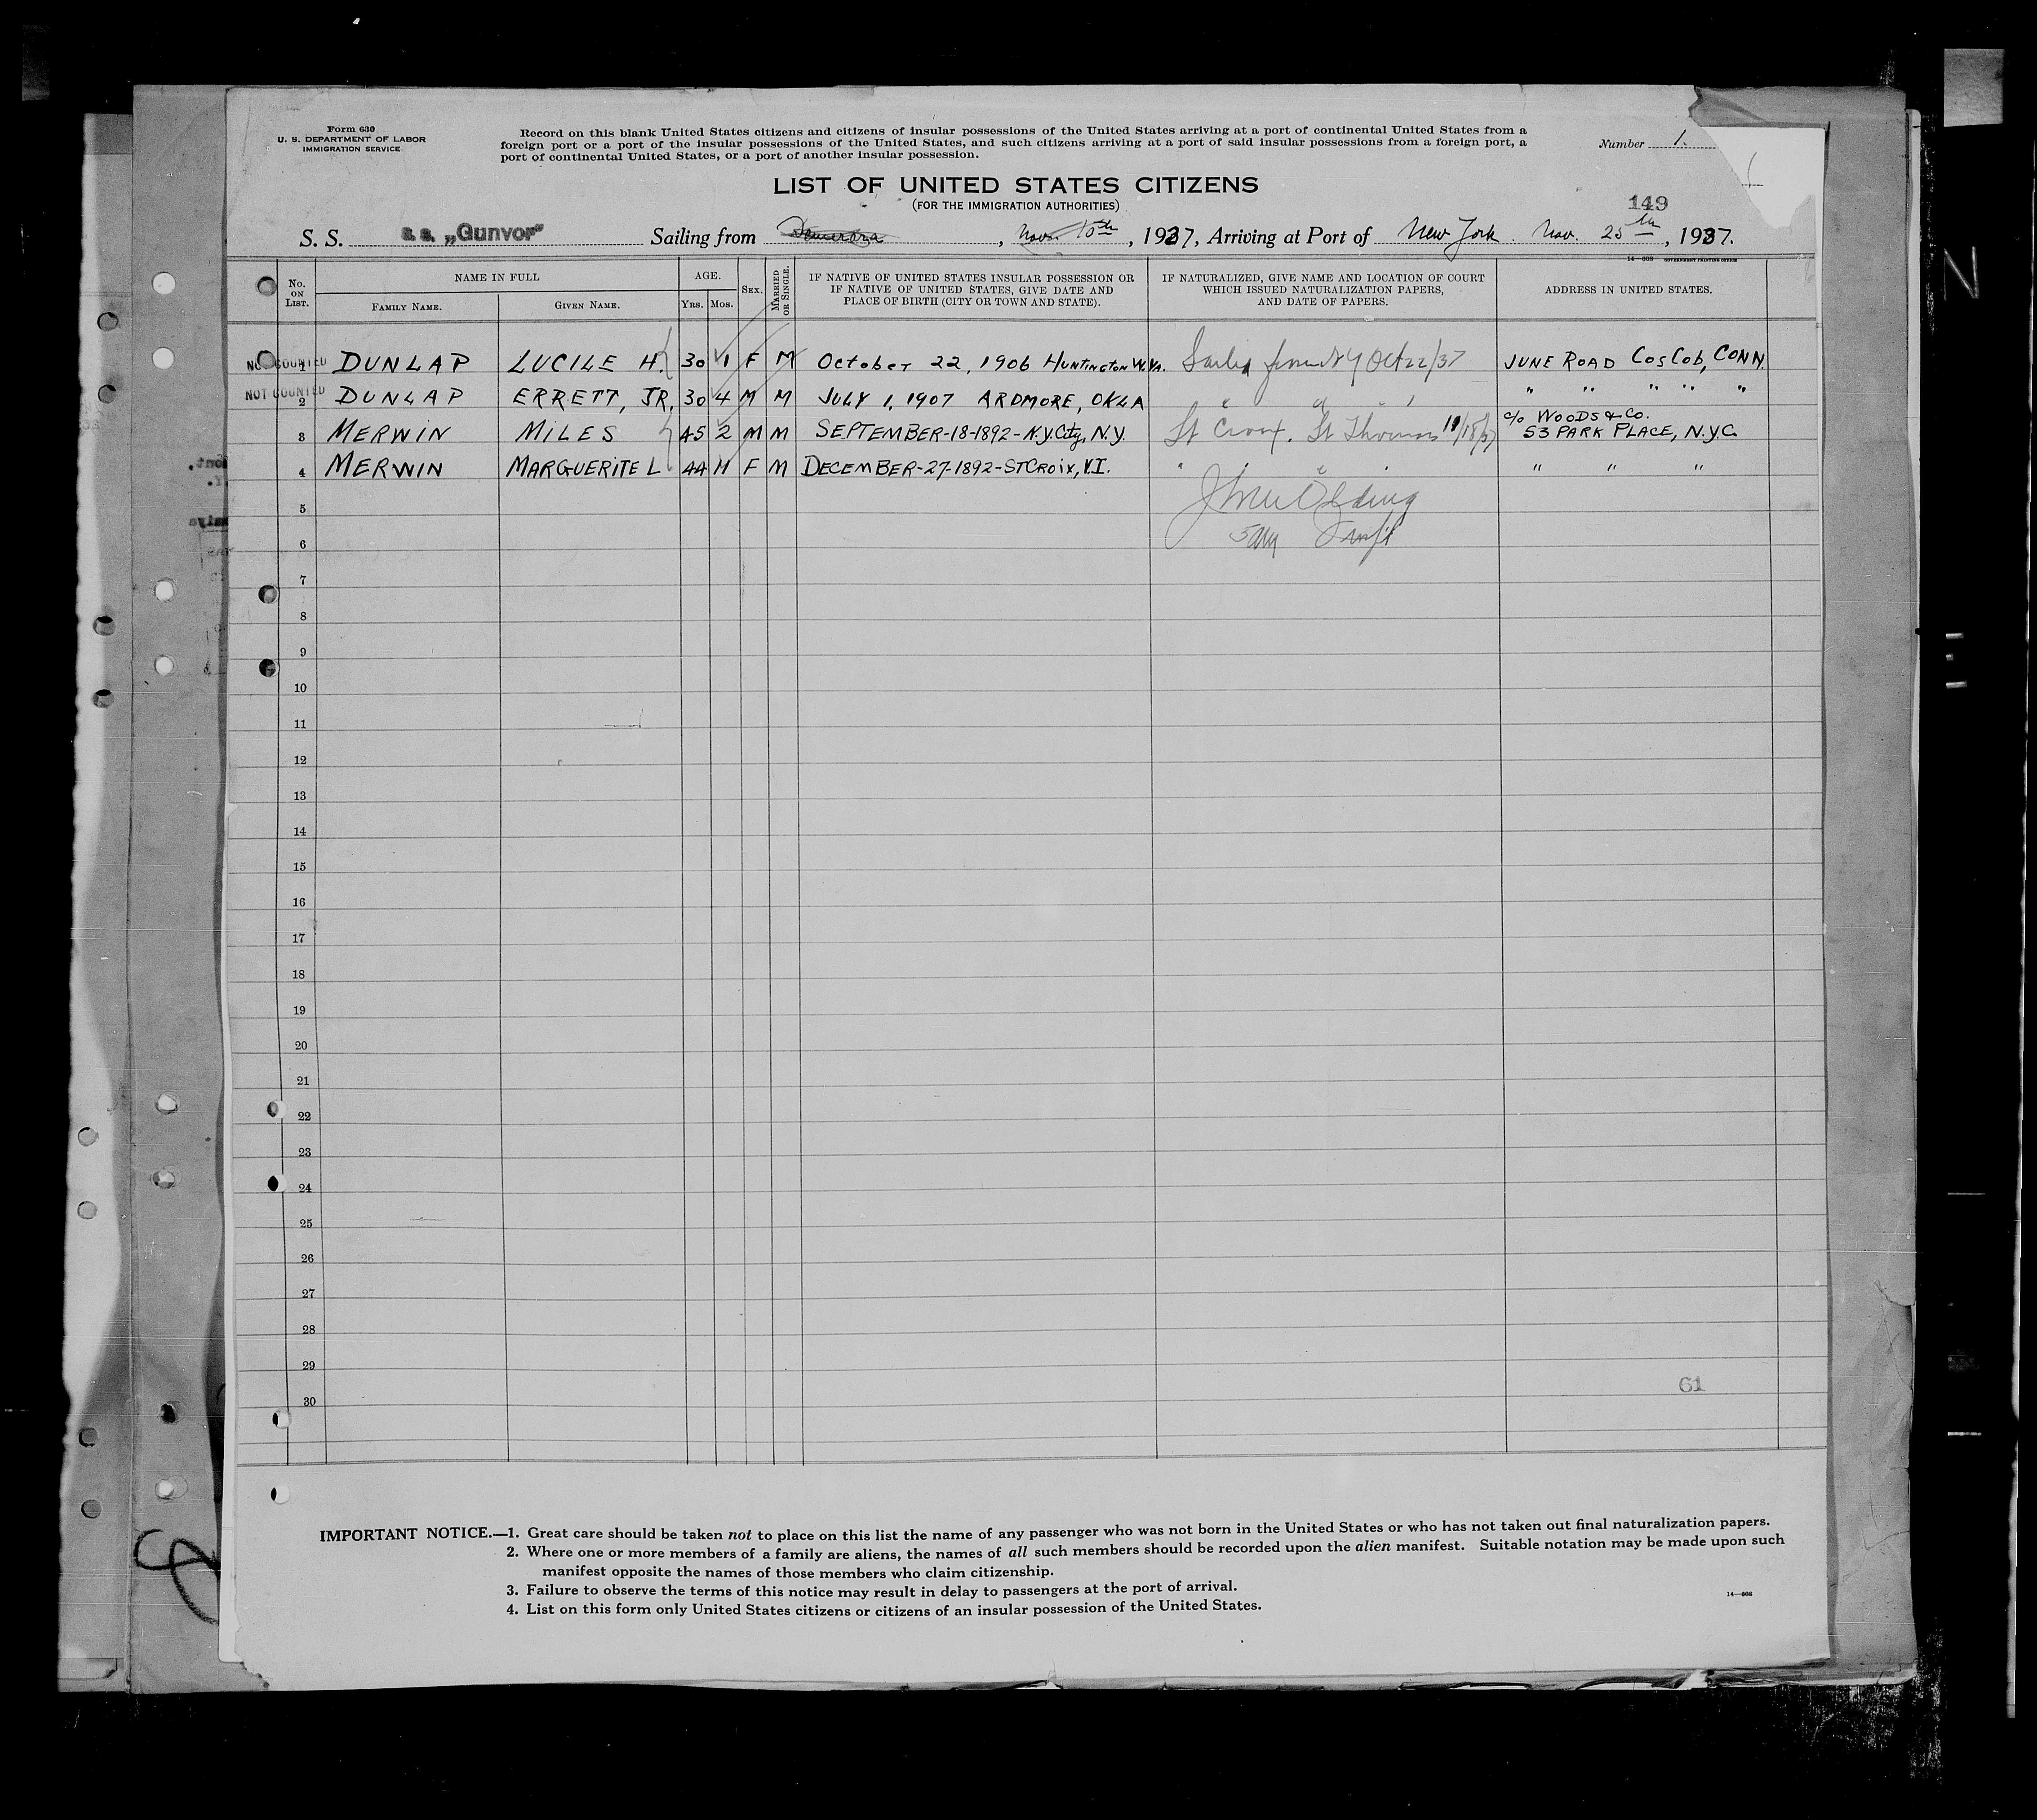 Form 630
U. S. DEPARTMENT OF LABOR
IMMIGRATION SERVICE
Record on this blank United States citizens and citizens of insular possessions of the United States arriving at a port of continental United States from a
foreign port or a port of the insular possessions of the United States, and such citizens arriving at a port of said insular possessions from a foreign port, a
port of continental United States, or a port of another insular possession.
Number 1.
LIST OF UNITED STATES CITIZENS
(FOR THE IMMIGRATION AUTHORITIES)
149
S. S. s. s. „Gunvor" Sailing from Demerara, Nov. 10th, 1937, Arriving at Port of New York. Nov. 25th, 1937.
14—608 GOVERNMENT PRINTING OFFICE
No. ON LIST. NAME IN FULL FAMILY NAME. GIVEN NAME. AGE. YRS. MOS. SEX. MARRIED OR SINGLE. IF NATIVE OF UNITED STATES INSULAR POSSESSION OR IF NATIVE OF UNITED STATES, GIVE DATE AND PLACE OF BIRTH (CITY OR TOWN AND STATE). IF NATURALIZED, GIVE NAME AND LOCATION OF COURT WHICH ISSUED NATURALIZATION PAPERS, AND DATE OF PAPERS. ADDRESS IN UNITED STATES.
NOT COUNTED 1 DUNLAP LUCILE H. 30 1 F M October 22, 1906 HUNTINGTON W. VA. from NY Oct 22/37 JUNE ROAD COS COB, CONN.
NOT COUNTED 2 DUNLAP ERRETT, JR. 30 4 M M JULY 1, 1907 ARDMORE, OKLA " " " " "
3 MERWIN MILES 45 2 M M SEPTEMBER-18-1892-N.Y.City, N.Y. St Croix. St Thomas c/o WOODS & CO. 53 PARK PLACE, N.Y.C.
4 MERWIN MARGUERITE L 44 11 F M DECEMBER-27-1892-ST CROIX, V.I. " " " "
5
6
7
8
9
10
11
12
13
14
15
16
17
18
19
20
21
22
23
24
25
26
27
28
29
61
30
IMPORTANT NOTICE.—1. Great care should be taken not to place on this list the name of any passenger who was not born in the United States or who has not taken out final naturalization papers.
2. Where one or more members of a family are aliens, the names of all such members should be recorded upon the alien manifest. Suitable notation may be made upon such
manifest opposite the names of those members who claim citizenship.
3. Failure to observe the terms of this notice may result in delay to passengers at the port of arrival.
4. List on this form only United States citizens or citizens of an insular possession of the United States.
14—608